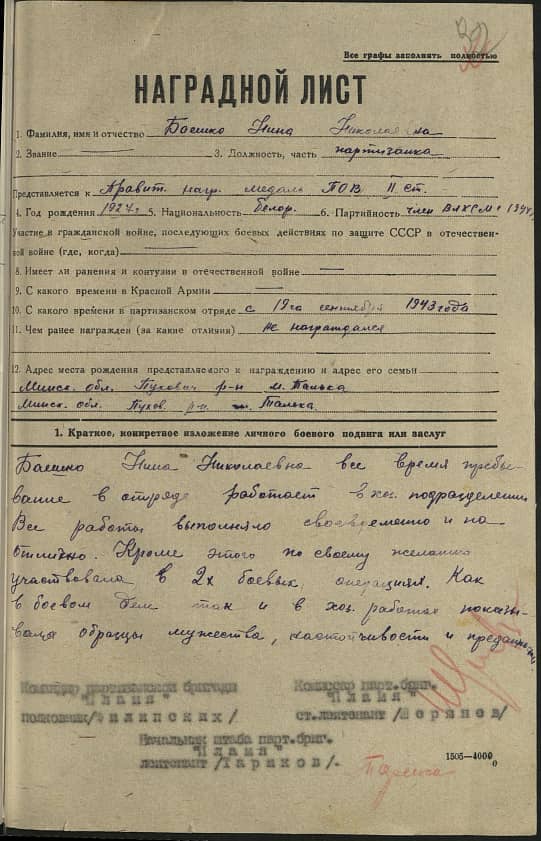 Все графы заполнять полностью
НАГРАДНОЙ ЛИСТ
1. Фамилия, имя и отчество Баешко Нина Николаевна
2. Звание — 3. Должность, часть партизанка
Представляется к Правит. нагр. медаль ПОВ II ст.
4. Год рождения 1927 г. 5. Национальность белор. 6. Партийность член ВЛКСМ с 1944
Участие в гражданской войне, последующих боевых действиях по защите СССР в отечествен-
ной войне (где, когда) —
8. Имеет ли ранения и контузии в отечественной войне —
9. С какого времени в Красной Армии —
10. С какого времени в партизанском отряде с 19го сентября 1943 года
11. Чем ранее награжден (за какие отличия) не награждался
12. Адрес места рождения представляемого к награждению и адрес его семьи
Минск. обл. Пухович р-н м. Талька
Минск. обл. Пухов. р-н м. Талька.
1. Краткое, конкретное изложение личного боевого подвига или заслуг
Баешко Нина Николаевна все время пребы-
вание в отряде работает в хоз. подразделении
Все работы выполняло своевременно и на
отлично. Кроме этого по своему желанию
участвовала в 2х боевых операциях. Как
в боевом деле так и в хоз. работах показы-
вала образцы мужества, настойчивости и преданно-
Командир партизанской бригады
"Пламя"
полковник /Филипских/
Комиссар парт.бриг.
"Пламя"
ст.лейтенант /
Начальник штаба парт.бриг.
"Пламя"
лейтенант /Тариков/.
1505—4000